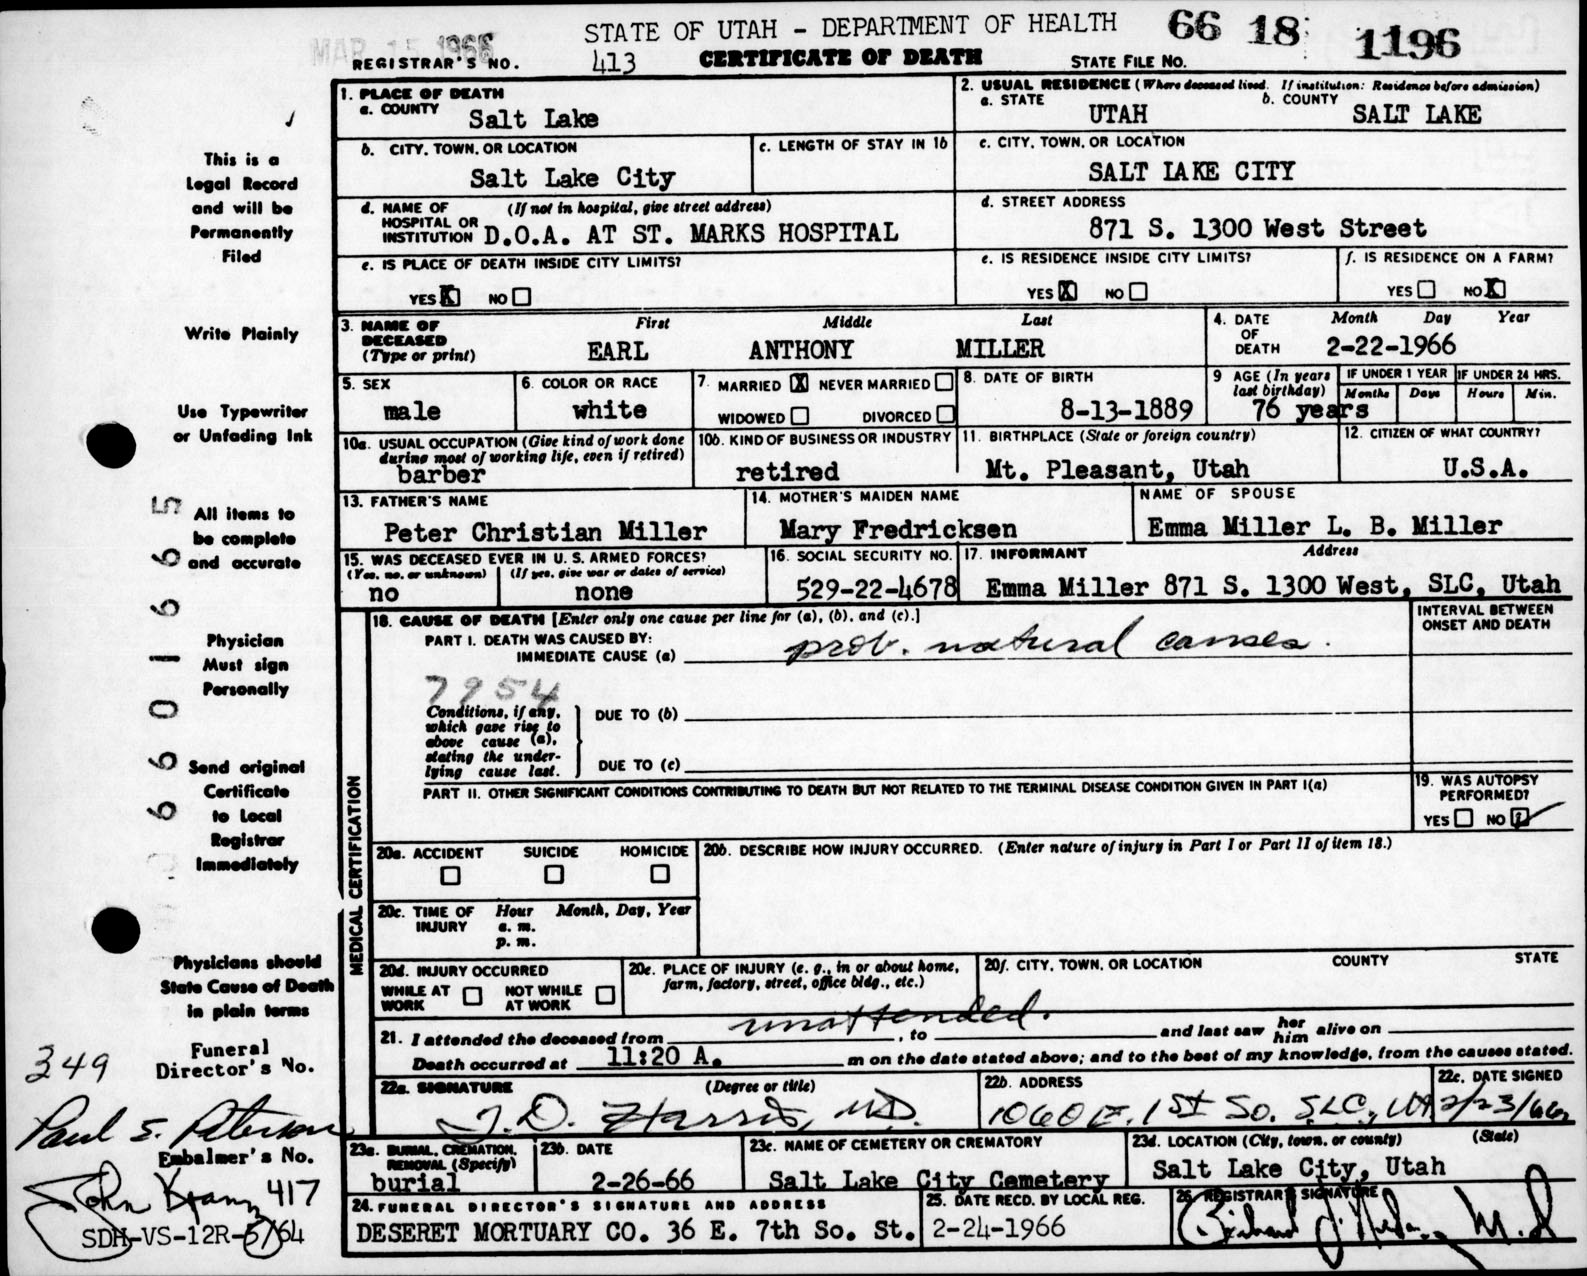 MAR 15 1966
STATE OF UTAH - DEPARTMENT OF HEALTH
66 18 1196
REGISTRAR'S NO. 413 CERTIFICATE OF DEATH STATE FILE NO.
This is a
Legal Record
and will be
Permanently
Filed
Write Plainly
Use Typewriter
or Unfading Ink
All items to
be complete
and accurate
Physician
Must sign
Personally
Send original
Certificate
to Local
Registrar
Immediately
Physicians should
State Cause of Death
in plain terms
Funeral
Director's No.
349
Paul S. Peterson
Embalmer's No.
John 417
SDH-VS-12R-5/64
660166 65
1. PLACE OF DEATH
a. COUNTY Salt Lake
2. USUAL RESIDENCE (Where deceased lived. If institution: Residence before admission)
a. STATE UTAH b. COUNTY SALT LAKE
b. CITY, TOWN, OR LOCATION Salt Lake City
c. LENGTH OF STAY IN 1b
c. CITY, TOWN, OR LOCATION
SALT LAKE CITY
d. NAME OF HOSPITAL OR INSTITUTION (If not in hospital, give street address)
D.O.A. AT ST. MARKS HOSPITAL
d. STREET ADDRESS
871 S. 1300 West Street
e. IS PLACE OF DEATH INSIDE CITY LIMITS?
YES X NO
e. IS RESIDENCE INSIDE CITY LIMITS?
YES X NO
f. IS RESIDENCE ON A FARM?
YES NO X
3. NAME OF DECEASED (Type or print)
First Middle Last
EARL ANTHONY MILLER
4. DATE OF DEATH Month Day Year
2-22-1966
5. SEX
male
6. COLOR OR RACE
white
7. MARRIED X NEVER MARRIED
WIDOWED DIVORCED
8. DATE OF BIRTH
8-13-1889
9 AGE (In years last birthday)
76 years
IF UNDER 1 YEAR
Months Days
IF UNDER 24 HRS.
Hours Min.
10a. USUAL OCCUPATION (Give kind of work done during most of working life, even if retired)
barber
10b. KIND OF BUSINESS OR INDUSTRY
retired
11. BIRTHPLACE (State or foreign country)
Mt. Pleasant, Utah
12. CITIZEN OF WHAT COUNTRY?
U.S.A.
13. FATHER'S NAME
Peter Christian Miller
14. MOTHER'S MAIDEN NAME
Mary Fredricksen
NAME OF SPOUSE
Emma Miller L. B. Miller
15. WAS DECEASED EVER IN U. S. ARMED FORCES?
(Yes, no, or unknown) (If yes, give war or dates of service)
no none
16. SOCIAL SECURITY NO.
529-22-4678
17. INFORMANT Address
Emma Miller 871 S. 1300 West, SLC, Utah
MEDICAL CERTIFICATION
18. CAUSE OF DEATH [Enter only one cause per line for (a), (b), and (c).]
PART I. DEATH WAS CAUSED BY:
IMMEDIATE CAUSE (a) prob. natural causes.
INTERVAL BETWEEN ONSET AND DEATH
7954
Conditions, if any, which gave rise to above cause (a), stating the underlying cause last.
DUE TO (b)
DUE TO (c)
PART II. OTHER SIGNIFICANT CONDITIONS CONTRIBUTING TO DEATH BUT NOT RELATED TO THE TERMINAL DISEASE CONDITION GIVEN IN PART I(a)
19. WAS AUTOPSY PERFORMED?
YES NO
20a. ACCIDENT SUICIDE HOMICIDE
20b. DESCRIBE HOW INJURY OCCURRED. (Enter nature of injury in Part I or Part II of item 18.)
20c. TIME OF INJURY Hour Month, Day, Year
a. m.
p. m.
20d. INJURY OCCURRED
WHILE AT WORK NOT WHILE AT WORK
20e. PLACE OF INJURY (e. g., in or about home, farm, factory, street, office bldg., etc.)
20f. CITY, TOWN, OR LOCATION COUNTY STATE
21. I attended the deceased from unattended. , to and last saw her him alive on
Death occurred at 11:20 A. m on the date stated above; and to the best of my knowledge, from the causes stated.
22a. SIGNATURE (Degree or title)
J. D. Harris, M.D.
22b. ADDRESS
1060 E. 1st So. SLC, Ut
22c. DATE SIGNED
2/23/66
23a. BURIAL, CREMATION, REMOVAL (Specify)
burial
23b. DATE
2-26-66
23c. NAME OF CEMETERY OR CREMATORY
Salt Lake City Cemetery
23d. LOCATION (City, town, or county) (State)
Salt Lake City, Utah
24. FUNERAL DIRECTOR'S SIGNATURE AND ADDRESS
DESERET MORTUARY CO. 36 E. 7th So. St.
25. DATE RECD. BY LOCAL REG.
2-24-1966
26. REGISTRAR'S SIGNATURE
M.D